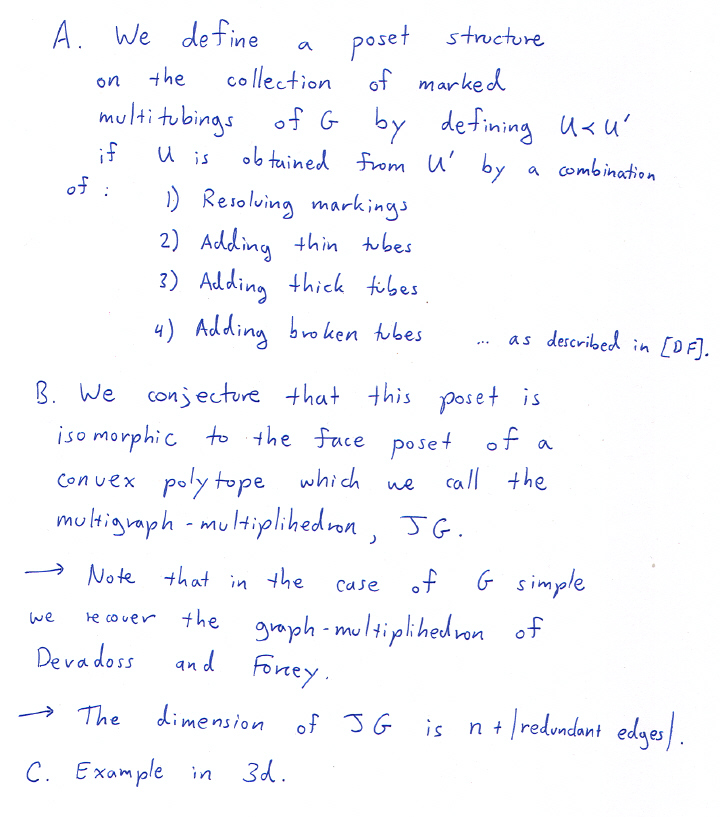 A. We define a poset structure
on the collection of marked
multitubings of G by defining U≺U'
if U is obtained from U' by a combination
of :
1) Resolving markings
2) Adding thin tubes
3) Adding thick tubes
4) Adding broken tubes ... as described in [DF].
B. We conjecture that this poset is
isomorphic to the face poset of a
convex polytope which we call the
multigraph-multiplihedron, JG.
→ Note that in the case of G simple
we recover the graph-multiplihedron of
Devadoss and Forcey.
→ The dimension of JG is n + |redundant edges|.
C. Example in 3d.